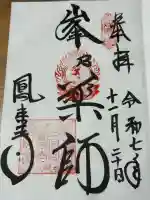 奉拝
令和七年
十一月二十日
峯乃薬師
鳳来寺